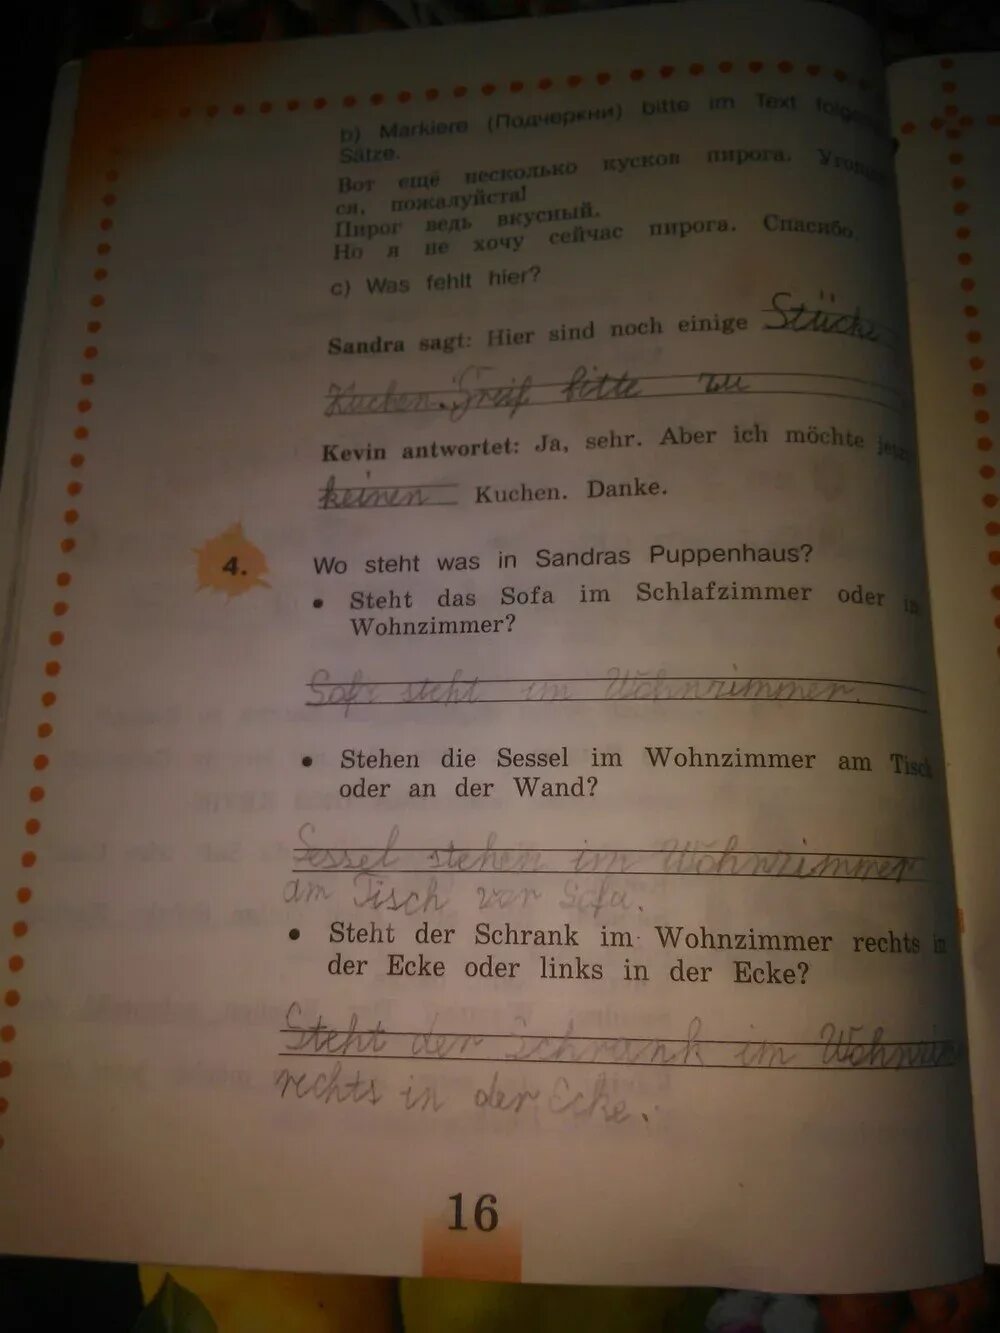 b) Markiere (Подчеркни) bitte im Text
Sätze.
Вот ещё несколько кусков пирога.
ся, пожалуйста!
Пирог ведь вкусный.
Но я не хочу сейчас пирога. Спасибо.
c) Was fehlt hier?
Sandra sagt: Hier sind noch einige Stücke
Kuchen. Greif bitte zu
Kevin antwortet: Ja, sehr. Aber ich möchte
keinen Kuchen. Danke.
4. Wo steht was in Sandras Puppenhaus?
• Steht das Sofa im Schlafzimmer oder
Wohnzimmer?
Sofa steht im Wohnzimmer.
• Stehen die Sessel im Wohnzimmer am Tisch
oder an der Wand?
Sessel stehen im Wohnzimmer
am Tisch vor Sofa.
• Steht der Schrank im Wohnzimmer rechts in
der Ecke oder links in der Ecke?
Steht der Schrank im
rechts in der Ecke.
16